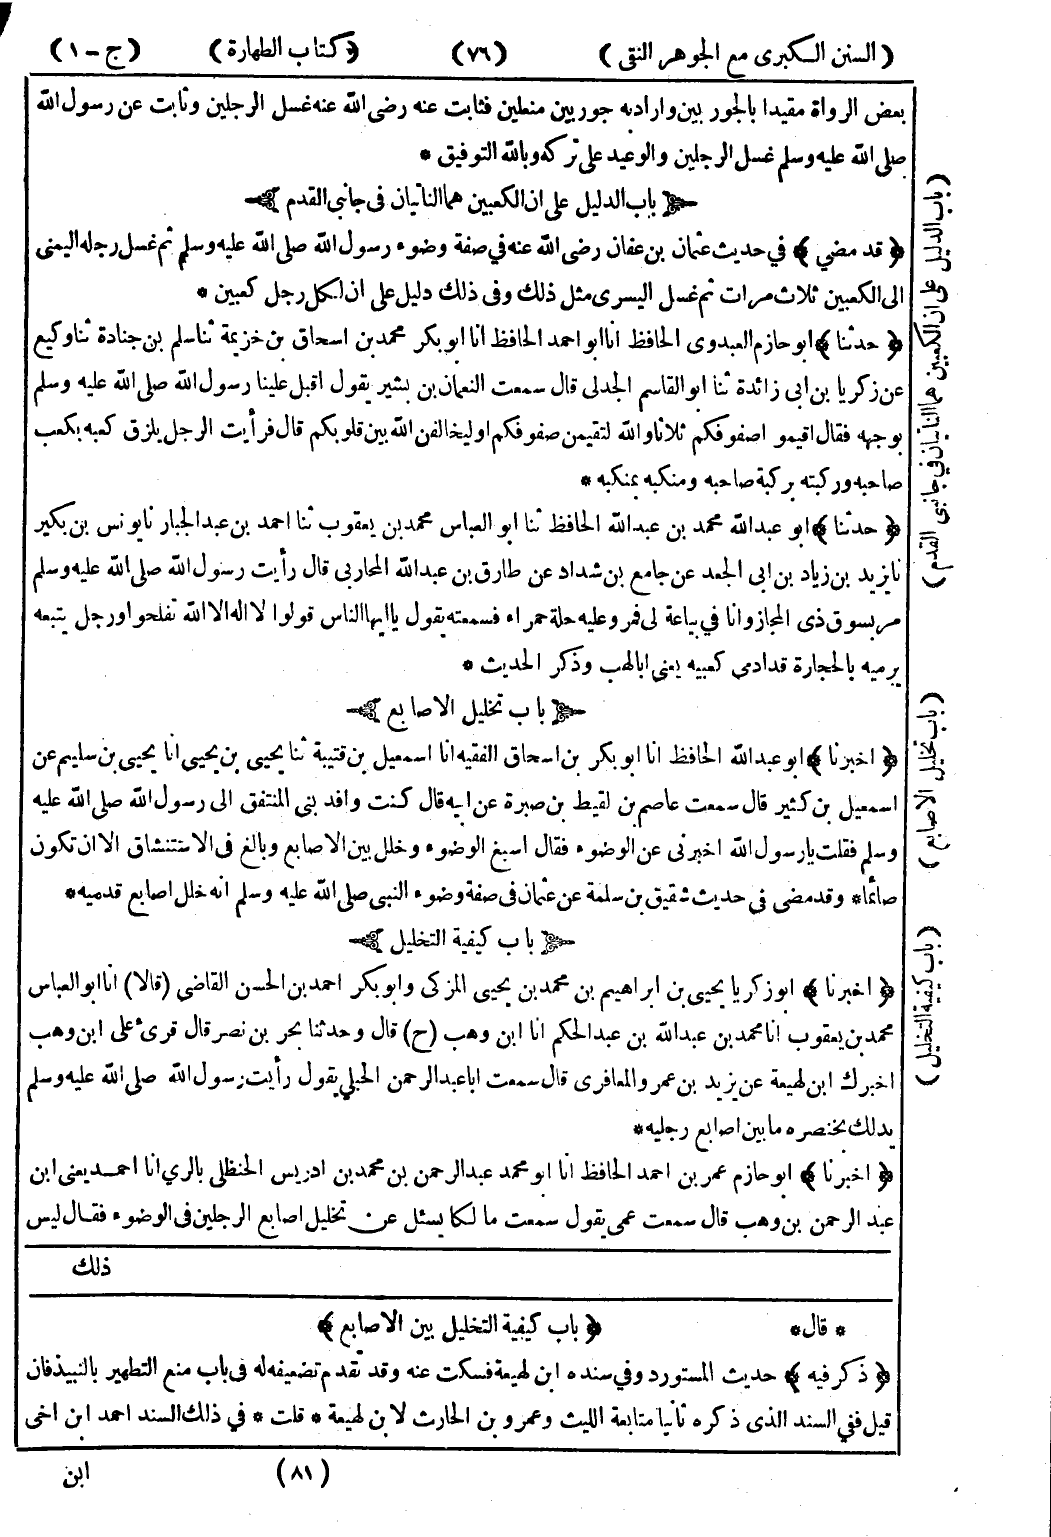 (السنن الكبرى مع الجوهر النقى) (٧٦) (كتاب الطهارة) (ج - ١)
بعض الرواة مقيدا بالجور بين واراد به جوربين منعلين فثابت عنه رضى الله عنه غسل الرجلين وثابت عن رسول الله
صلى الله عليه وسلم غسل الرجلين والوعيد على تركه وبالله التوفيق *
باب الدليل على ان الكعبين هما الناتيان فى جانبى القدم
﴿ قد مضى ﴾ في حديث عثمان بن عفان رضى الله عنه فى صفة وضوء رسول الله صلى الله عليه وسلم ثم غسل رجله اليمنى
الى الكعبين ثلاث مرات ثم غسل اليسرى مثل ذلك وفى ذلك دليل على ان لكل رجل كعبين *
﴿ حدثنا ﴾ ابو حازم العبدوى الحافظ انا ابو احمد الحافظ انا ابو بكر محمد بن اسحاق بن خزيمة ثنا سلم بن جنادة ثنا وكيع
عن زكريا بن ابى زائدة ثنا ابو القاسم الجدلى قال سمعت النعمان بن بشير يقول اقبل علينا رسول الله صلى الله عليه وسلم
بوجهه فقال اقيمو اصفوفكم ثلاثا والله لتقيمن صفوفكم او ليخالفن الله بين قلوبكم قال فرأيت الرجل يلزق كعبه بكعب
صاحبه وركبته بركبة صاحبه ومنكبه بمنكبه *
﴿ حدثنا ﴾ ابو عبد الله محمد بن عبد الله الحافظ ثنا ابو العباس محمد بن يعقوب ثنا احمد بن عبد الجبار نا يونس بن بكير
نا يزيد بن زياد بن ابى الجعد عن جامع بن شداد عن طارق بن عبد الله المحاربى قال رأيت رسول الله صلى الله عليه وسلم
مر بسوق ذى المجاز وانا في بياعة لى فمر وعليه حلة حمراء فسمعته يقول يا ايها الناس قولوا لا اله الا الله تفلحو اورجل يتبعه
يرميه بالحجارة قد ادمى كعبيه يعنى ابا لهب وذكر الحديث *
باب تخليل الاصابع
﴿ اخبرنا ﴾ ابو عبد الله الحافظ انا ابو بكر بن اسحاق الفقيه انا اسمعيل بن قتيبة ثنا يحيى بن يحيى انا يحيى بن سليم عن
اسمعيل بن كثير قال سمعت عاصم بن لقيط بن صبرة عن ابيه قال كنت وافد بنى المنتفق الى رسول الله صلى الله عليه
وسلم فقلت يا رسول الله اخبرنى عن الوضوء فقال اسبغ الوضوء وخلل بين الاصابع وبالغ فى الاستنشاق الا ان تكون
صائما* وقد مضى في حديث شقيق بن سلمة عن عثمان فى صفة وضوء النبى صلى الله عليه وسلم انه خلل اصابع قدميه*
باب كيفية التخليل
﴿ اخبرنا ﴾ ابو زكريا يحيى بن ابراهيم بن محمد بن يحيى المزكى وابو بكر احمد بن الحسن القاضى (قالا) انا ابو العباس
محمد بن يعقوب انا محمد بن عبد الله بن عبد الحكم انا ابن وهب (ح) قال وحدثنا بحر بن نصر قال قرئ على ابن وهب
اخبرك ابن لهيعة عن يزيد بن عمرو المعافرى قال سمعت ابا عبد الرحمن الحبلى يقول رأيت رسول الله صلى الله عليه وسلم
يدلك بخنصره ما بين اصابع رجليه*
﴿ اخبرنا ﴾ ابو حازم عمر بن احمد الحافظ انا ابو محمد عبد الرحمن بن محمد بن ادريس الحنظلى بالرى انا احمد يعنى ابن
عبد الرحمن بن وهب قال سمعت عمى يقول سمعت مالكا يسئل عن تخليل اصابع الرجلين فى الوضوء فقال ليس
ذلك
* قال* ﴿ باب كيفية التخليل بين الاصابع ﴾
﴿ ذكر فيه ﴾ حديث المستورد وفى سنده ابن لهيعة فسكت عنه وقد تقدم تضعيفه له فى باب منع التطهير بالنبيذ فان
قيل ففى السند الذى ذكره ثانيا متابعة الليث وعمرو بن الحارث لابن لهيعة * قلت * في ذلك السند احمد ابن اخى
(٨١) ابن
(باب الدليل على ان الكعبين هما الناتيان فى جانبى القدم)
(باب تخليل الاصابع)
(باب كيفية التخليل)